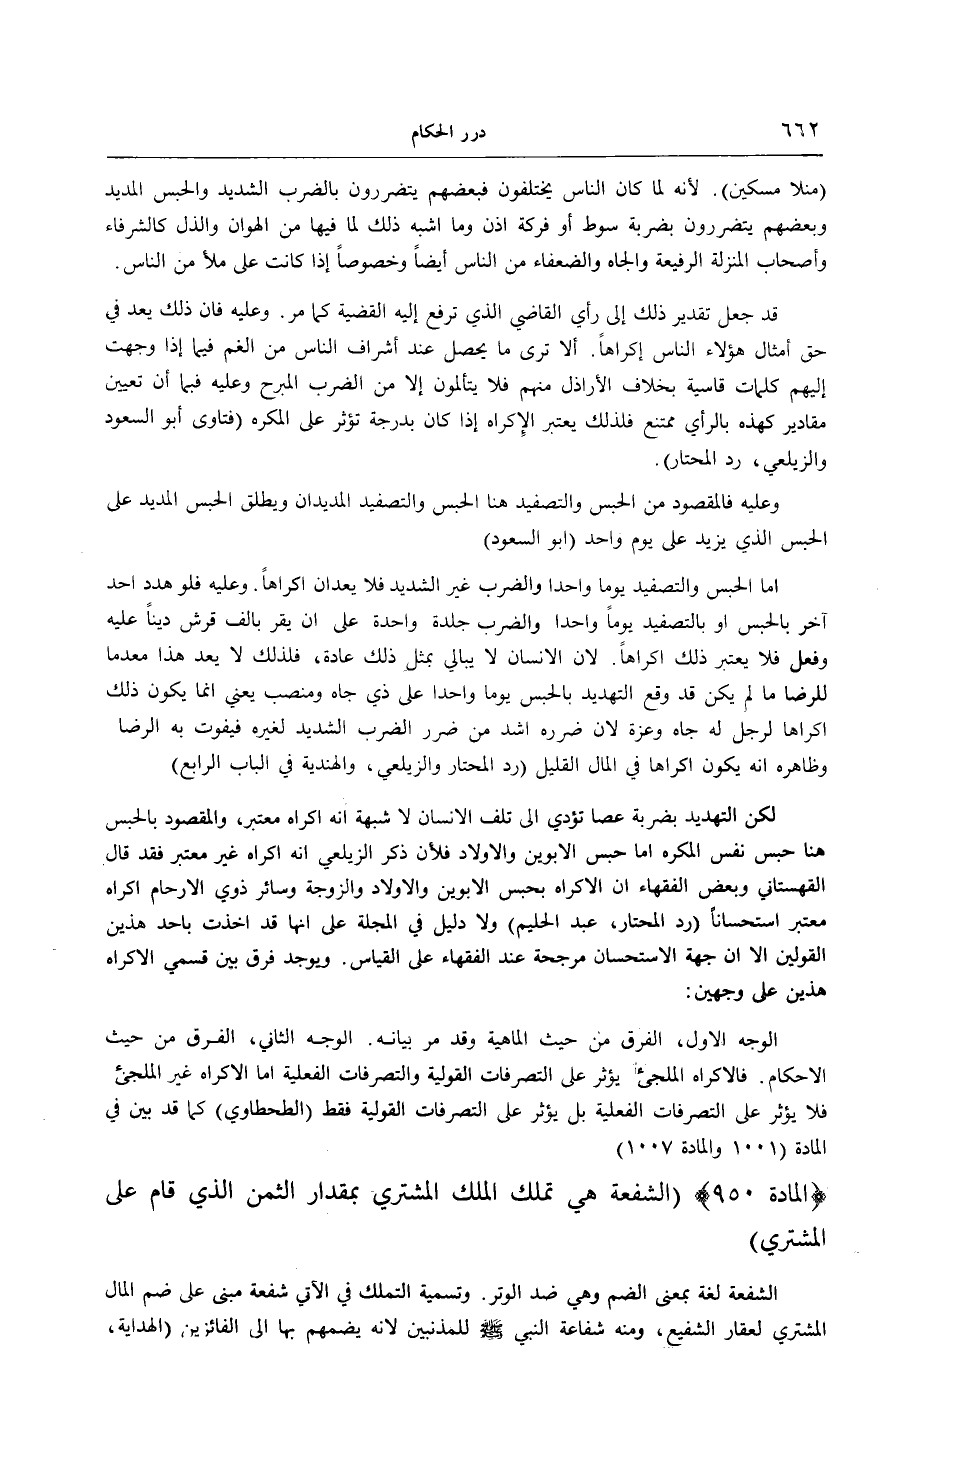 ٦٦٢
درر الحكام
(منلا مسكين). لأنه لما كان الناس يختلفون فبعضهم يتضررون بالضرب الشديد والحبس المديد
وبعضهم يتضررون بضربة سوط أو فركة اذن وما اشبه ذلك لما فيها من الهوان والذل كالشرفاء
وأصحاب المنزلة الرفيعة والجاه والضعفاء من الناس أيضاً وخصوصاً إذا كانت على ملأ من الناس.
قد جعل تقدير ذلك إلى رأي القاضي الذي ترفع إليه القضية كما مر. وعليه فان ذلك يعد في
حق أمثال هؤلاء الناس إكراهاً. ألا ترى ما يحصل عند أشراف الناس من الغم فيما إذا وجهت
إليهم كلمات قاسية بخلاف الأراذل منهم فلا يتألمون إلا من الضرب المبرح وعليه فبما أن تعيين
مقادير كهذه بالرأي ممتنع فلذلك يعتبر الإكراه إذا كان بدرجة تؤثر على المكره (فتاوى أبو السعود
والزيلعي، رد المحتار).
وعليه فالمقصود من الحبس والتصفيد هنا الحبس والتصفيد المديدان ويطلق الحبس المديد على
الحبس الذي يزيد على يوم واحد (ابو السعود)
اما الحبس والتصفيد يوما واحدا والضرب غير الشديد فلا يعدان اكراهاً. وعليه فلو هدد احد
آخر بالحبس او بالتصفيد يوماً واحدا والضرب جلدة واحدة على ان يقر بالف قرش ديناً عليه
وفعل فلا يعتبر ذلك اكراهاً. لان الانسان لا يبالي بمثل ذلك عادة، فلذلك لا يعد هذا معدما
للرضا ما لم يكن قد وقع التهديد بالحبس يوما واحدا على ذي جاه ومنصب يعني انما يكون ذلك
اكراها لرجل له جاه وعزة لان ضرره اشد من ضرر الضرب الشديد لغيره فيفوت به الرضا
وظاهره انه يكون اكراها في المال القليل (رد المحتار والزيلعي، والهندية في الباب الرابع)
لكن التهديد بضربة عصا تؤدي الى تلف الانسان لا شبهة انه اكراه معتبر، والمقصود بالحبس
هنا حبس نفس المكره اما حبس الابوين والاولاد فلأن ذكر الزيلعي انه اكراه غير معتبر فقد قال
القهستاني وبعض الفقهاء ان الاكراه بحبس الابوين والاولاد والزوجة وسائر ذوي الارحام اكراه
معتبر استحساناً (رد المحتار، عبد الحليم) ولا دليل في المجلة على انها قد اخذت باحد هذين
القولين الا ان جهة الاستحسان مرجحة عند الفقهاء على القياس. ويوجد فرق بين قسمي الاكراه
هذين على وجهين:
الوجه الاول، الفرق من حيث الماهية وقد مر بيانه. الوجه الثاني، الفرق من حيث
الاحكام. فالاكراه الملجئ يؤثر على التصرفات القولية والتصرفات الفعلية اما الاكراه غير الملجئ
فلا يؤثر على التصرفات الفعلية بل يؤثر على التصرفات القولية فقط (الطحطاوي) كما قد بين في
المادة (١٠٠١ والمادة ١٠٠٧)
﴿المادة ٩٥٠﴾ (الشفعة هي تملك الملك المشتري بمقدار الثمن الذي قام على
المشتري)
الشفعة لغة بمعنى الضم وهي ضد الوتر. وتسمية التملك في الآتي شفعة مبنى على ضم المال
المشتري لعقار الشفيع، ومنه شفاعة النبي ﷺ للمذنبين لانه يضمهم بها الى الفائزين (الهداية،